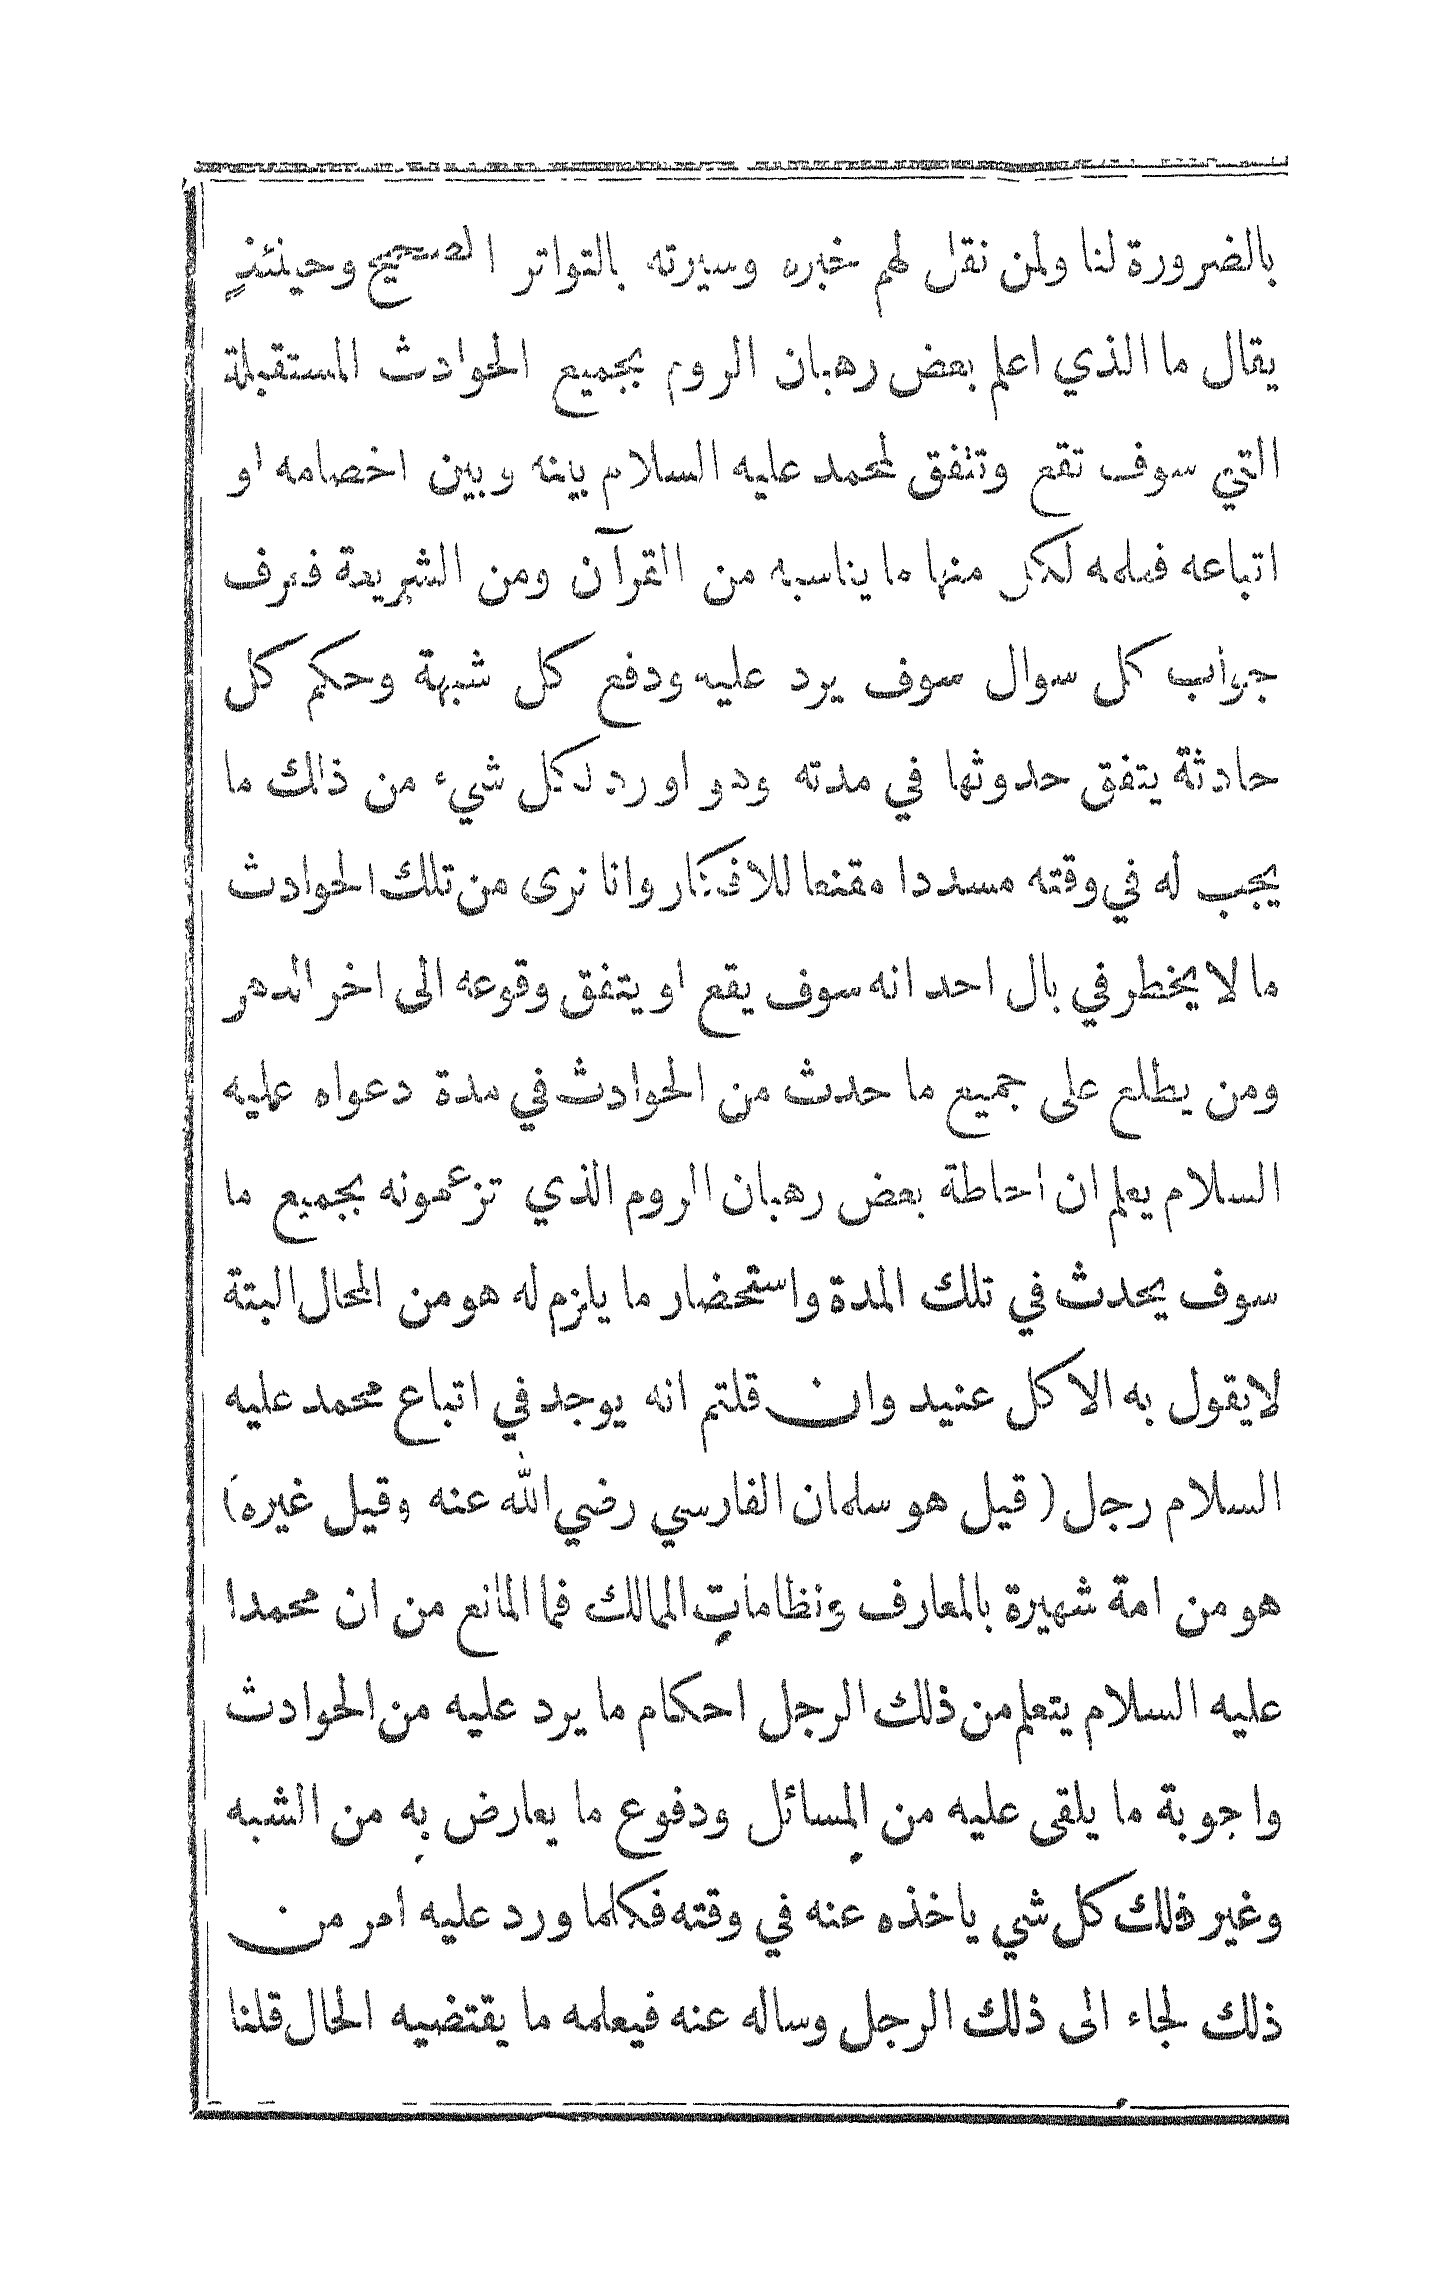 بالضرورة لنا ولمن نقل لهم خبره وسيرته بالتواتر الصحيح وحينئذ
يقال ما الذي اعلم بعض رهبان الروم بجميع الحوادث المستقبلة
التي سوف تقع وتتفق لمحمد عليه السلام بينه وبين اخصامه او
اتباعه فعلمه لكل منها ما يناسبه من القرآن ومن الشريعة فعرف
جواب كل سوال سوف يرد عليه ودفع كل شبهة وحكم كل
حادثة يتفق حدوثها في مدته وهو اورد لكل شيء من ذلك ما
يجب له في وقته مسددا مقنعا للافكار وانا نرى من تلك الحوادث
ما لا يخطر في بال احد انه سوف يقع او يتفق وقوعه الى اخر الدهر
ومن يطلع على جميع ما حدث من الحوادث في مدة دعواه عليه
السلام يعلم ان احاطة بعض رهبان الروم الذي تزعمونه بجميع ما
سوف يحدث في تلك المدة واستحضار ما يلزم له هو من المحال البتة
لا يقول به الا كل عنيد وان قلتم انه يوجد في اتباع محمد عليه
السلام رجل ( قيل هو سلمان الفارسي رضي الله عنه وقيل غيره )
هو من امة شهيرة بالمعارف ونظامات الممالك فما المانع من ان محمدا
عليه السلام يتعلم من ذلك الرجل احكام ما يرد عليه من الحوادث
واجوبة ما يلقى عليه من المسائل ودفوع ما يعارض به من الشبه
وغير ذلك كل شي ياخذه عنه في وقته فكلما ورد عليه امر من
ذلك لجاء الى ذلك الرجل وساله عنه فيعلمه ما يقتضيه الحال قلنا